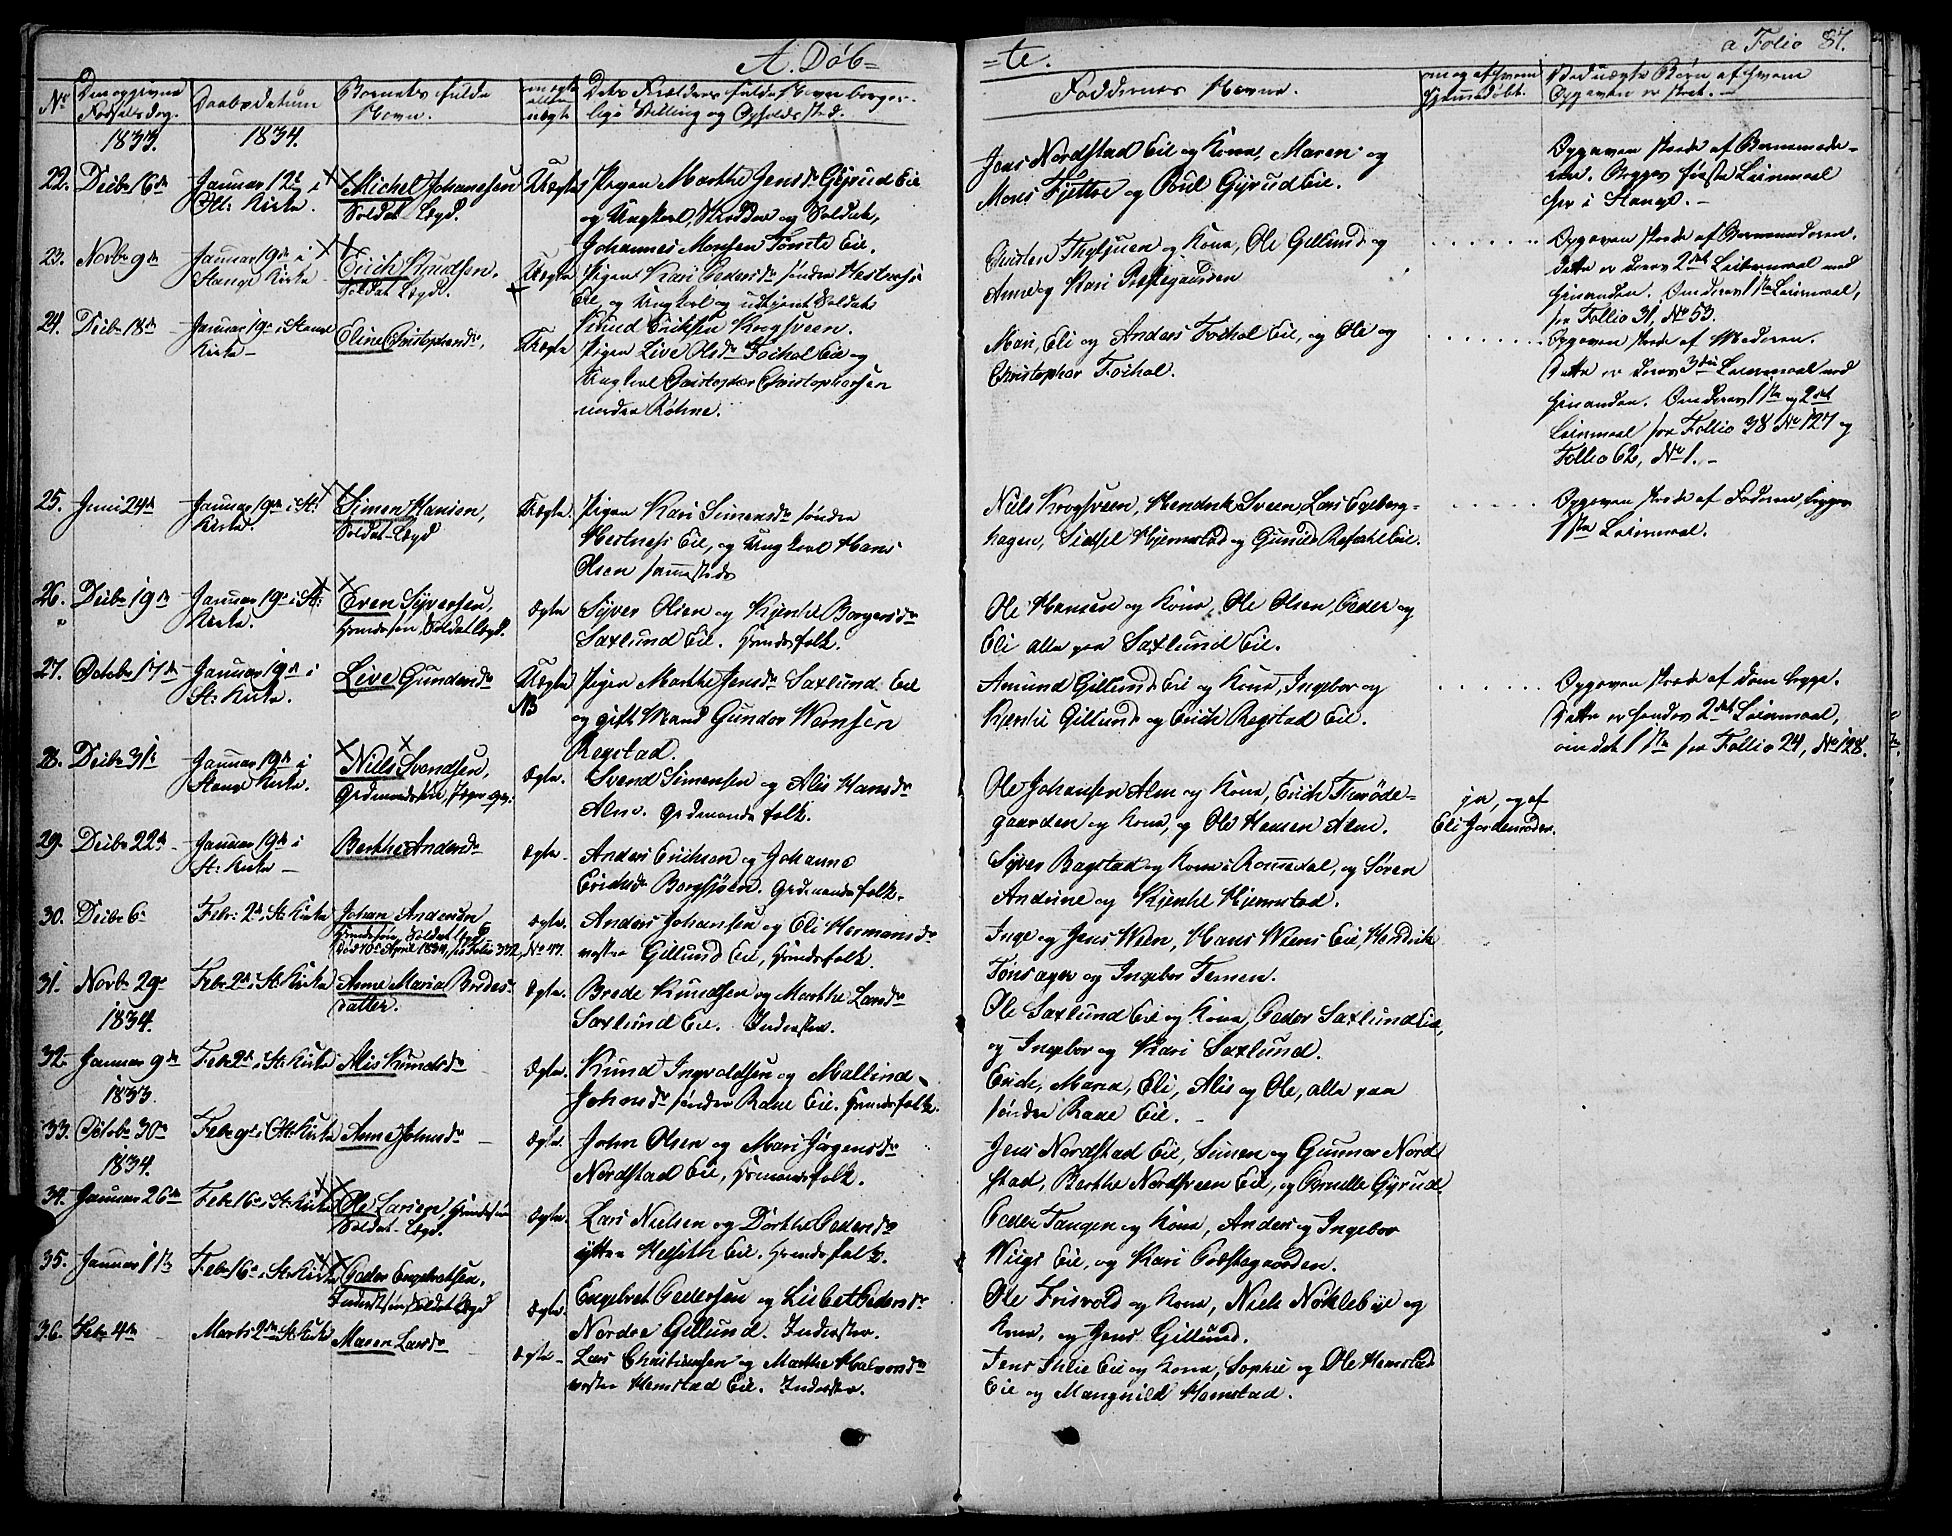 A. Døb=
=te.
a Folio 87.
No
Den opgivne Fødselsdag.
Daabsdatum
Barnets fulde Navn.
om ægte eller uægte
Dets Forældres fulde Navn borger-
lige Stilling og Opholdssted.
Faddernes Navne.
om og af hvem hjemmedøbt.
Ved uægte Børn af hvem
Opgaven er skeet.
1833.
1834.
22. Decbr 16de
Januar 12te i
St: Kirke.
Michel Johannesen
Soldat Lægd.
Uægte
Pigen Marthe Jensdr Gyrud Eie
og Ungkarl, Skrædder og Soldat,
Johannes Monsen Tomte Eie.
Jens Nordstad Eie og Kone, Maren og
Mons Fjette og Poul Gyrud Eie.
Opgaven skeede af Barnemode-
ren. Begges første Leiermaal
her i Stange.
23. Novbr 9de
Januar 19de i
Stange Kirke
Erich Knudsen.
Soldat Lægd.
Uægte
Pigen Kari Pedersdr søndre Hestness
Eie, og Ungkarl og udtjent Soldat
Knud Eriksen Krogsveen.
Christen og Kone, Ole Gillund og
Anne og Kari Præstegaarden
Opgaven skeede af Barnemoderen.
Dette er deres 2det Leiermaal med
hinanden. Om deres 1ste Leiermaal,
see Follio 31, No 53.
24. Decbr 18de
Januar 19de i Stange
Kirke
Eline Christophersdr,
Uægte
Pigen Live Olsdr Fockol Eie og
Ungkarl Christopher Christophersen
nedre Røhne.
Mari, Eli og Anders Fockol Eie, og Ole og
Christopher Fockol.
Opgaven skeede af Moderen.
Dette er deres 3die Leiermaal med
hinanden. Om deres 1ste og 2det
Leiermaal see Follio 38 No 127 og
Follio 62, No 1.
25. Juni 24de
Januar 19de i St:
Kirke
Simen Hansen,
Soldat-Lægd
Uægte.
Pigen Kari Simensdr søndre
Hestness Eie, og Ungkarl Hans
Olsen sammesteds
Niels Krogsveen, Hendrik Sveen, Lars Egeberg-
hagen, Sidsel Hjemstad og Gunild Eie.
Opgaven skeede af Faderen, begges
1ste Leiermaal.
26. Decbr 19de
Januar 19de i St:
Kirke.
Even Syversen,
Huusmdsøn, Soldat Lægd.
Ægte
Syver Olsen og Kjersti Borgersdr
Saxlund Eie. Huusmdsfolk.
Ole Hansen og Kone, Ole Olsen, Peder og
Eli alle paa Saxlund Eie.
27. October 17de
Januar 19de i
St: Kirke.
Live Gundersdr
Uægte
NB
Pigen Marthe Jensdr Saxlund Eie
og gift Mand Gunder Wernsen
Rogstad.
Amund Gillund Eie og Kone, Ingebor og
Kjersti Gillund og Erich Rogstad Eie.
Opgaven skeede af dem begge.
Dette er hendes 2det Leiermaal,
om det 1ste see Follio 24, No 128.
28. Decbr 31te
Januar 19de i
Stange Kirke.
Niels Svendsen,
Grdmandssøn,
Ægte.
Svend Simensen og Alis Hansdr
Alm. Grdmandsfolk.
Ole Johansen Alm og Kone, Erich Thorøde-
gaarden og Kone, og Ole Hansen Alm.
ja, og af
Eli Jordemoder.
29. Decbr 22de
Januar 19de i
St: Kirke
Berthe Andersdr
Ægte.
Anders Erichsen og Johanne
Erichsdr Borgsjøen. Grdmandsfolk.
Syver Bagstad og Kone i Romedal, og Søren
Andrine og Kjersti Hjemstad.
30. Decbr 6te
Febr: 2den i St: Kirke
Johan Andersen
Huusmdsøn, Soldat Lægd
Død 10de April 1834, see Folio 332, No 47.
Ægte.
Anders Johansen og Eli Hermansdr
vestre Gillund Eie, Huusmdsfolk.
Inge og Jens Ween, Hans Weens Eie, Hendrik
Tonsager og Ingebor Ternen.
31. Novbr 29de
Febr 2den i St: Kirke
Anne Maria Bredes-
datter.
Ægte.
Brede Knudsen og Marthe Larsdr
Saxlund Eie. Inderster.
Ole Saxlund Eie og Kone, Peder Saxlund Eie,
og Ingebor og Kari Saxlund.
1834.
32. Januar 9de
Febr 2den i St: Kirke
Alis Knudsdr
Ægte.
Knud Ingvaldsen og Mallene
Johnsdr søndre Raae Eie. Huusmdsfolk.
Erich, Maria, Eli, Alis og Ole, alle paa
søndre Raae Eie.
1833.
33. Octobr 30te
Febr 9de i St: Kirke
Anne Johnsdr
Ægte.
John Olsen og Mari Jørgensdr
Nordstad Eie, Huusmandsfolk.
Jens Nordstad Eie, Simen og Gunnar Nord
stad, Berthe Nordsveen Eie, og Pernille Gyrud.
1834.
34. Januar 26de
Febr 16de i St: Kirke
Ole Larsen, Huusmdsøn
Soldat-Lægd.
Ægte.
Lars Nielsen og Dorthe Pedersdr
yttre Helseth Eie. Huusmdsfolk.
Peder Tangen og Kone, Anders og Ingebor
Wiigs Eie, og Kari Præstegaarden.
35. Januar 1ste
Febr 16de i St: Kirke
Peder Engebretsen,
Inderstsøn, Soldat Lægd
Ægte.
Engebret Pedersen og Lisbet Pedersdr
Nordre Gillund. Inderster.
Ole Frisvold og Kone, Niels Nøklebye og
Kone, og Jens Gillund.
36. Febr 4de
Marts 2den St: Kirke
Maren Larsdr
Ægte
Lars Christiansen og Marthe Halvorsdr
vestre Hemstad Eie. Inderster.
Jens Eie og Kone, Sophie og Ole Hemstad
Eie og Mangnild Hemstad.